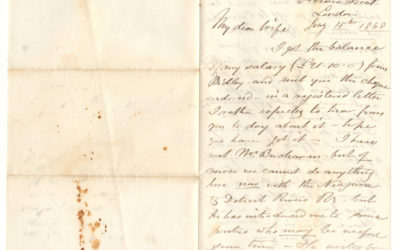 London
My dear wife Jany 15th 1868
I got the balance
of my salary (£21-10-0) from
Ridley and sent you the cheque
endorsed - in a registered letter
I rather expected to hear from
you to day about it - hope
you have got it - I have
met Mr Buchanan - but of
course we cannot do anything
here now with the Niagara
& Detroit Rivers Ry - but
he has introduced me to some
parties who may be useful
some time -